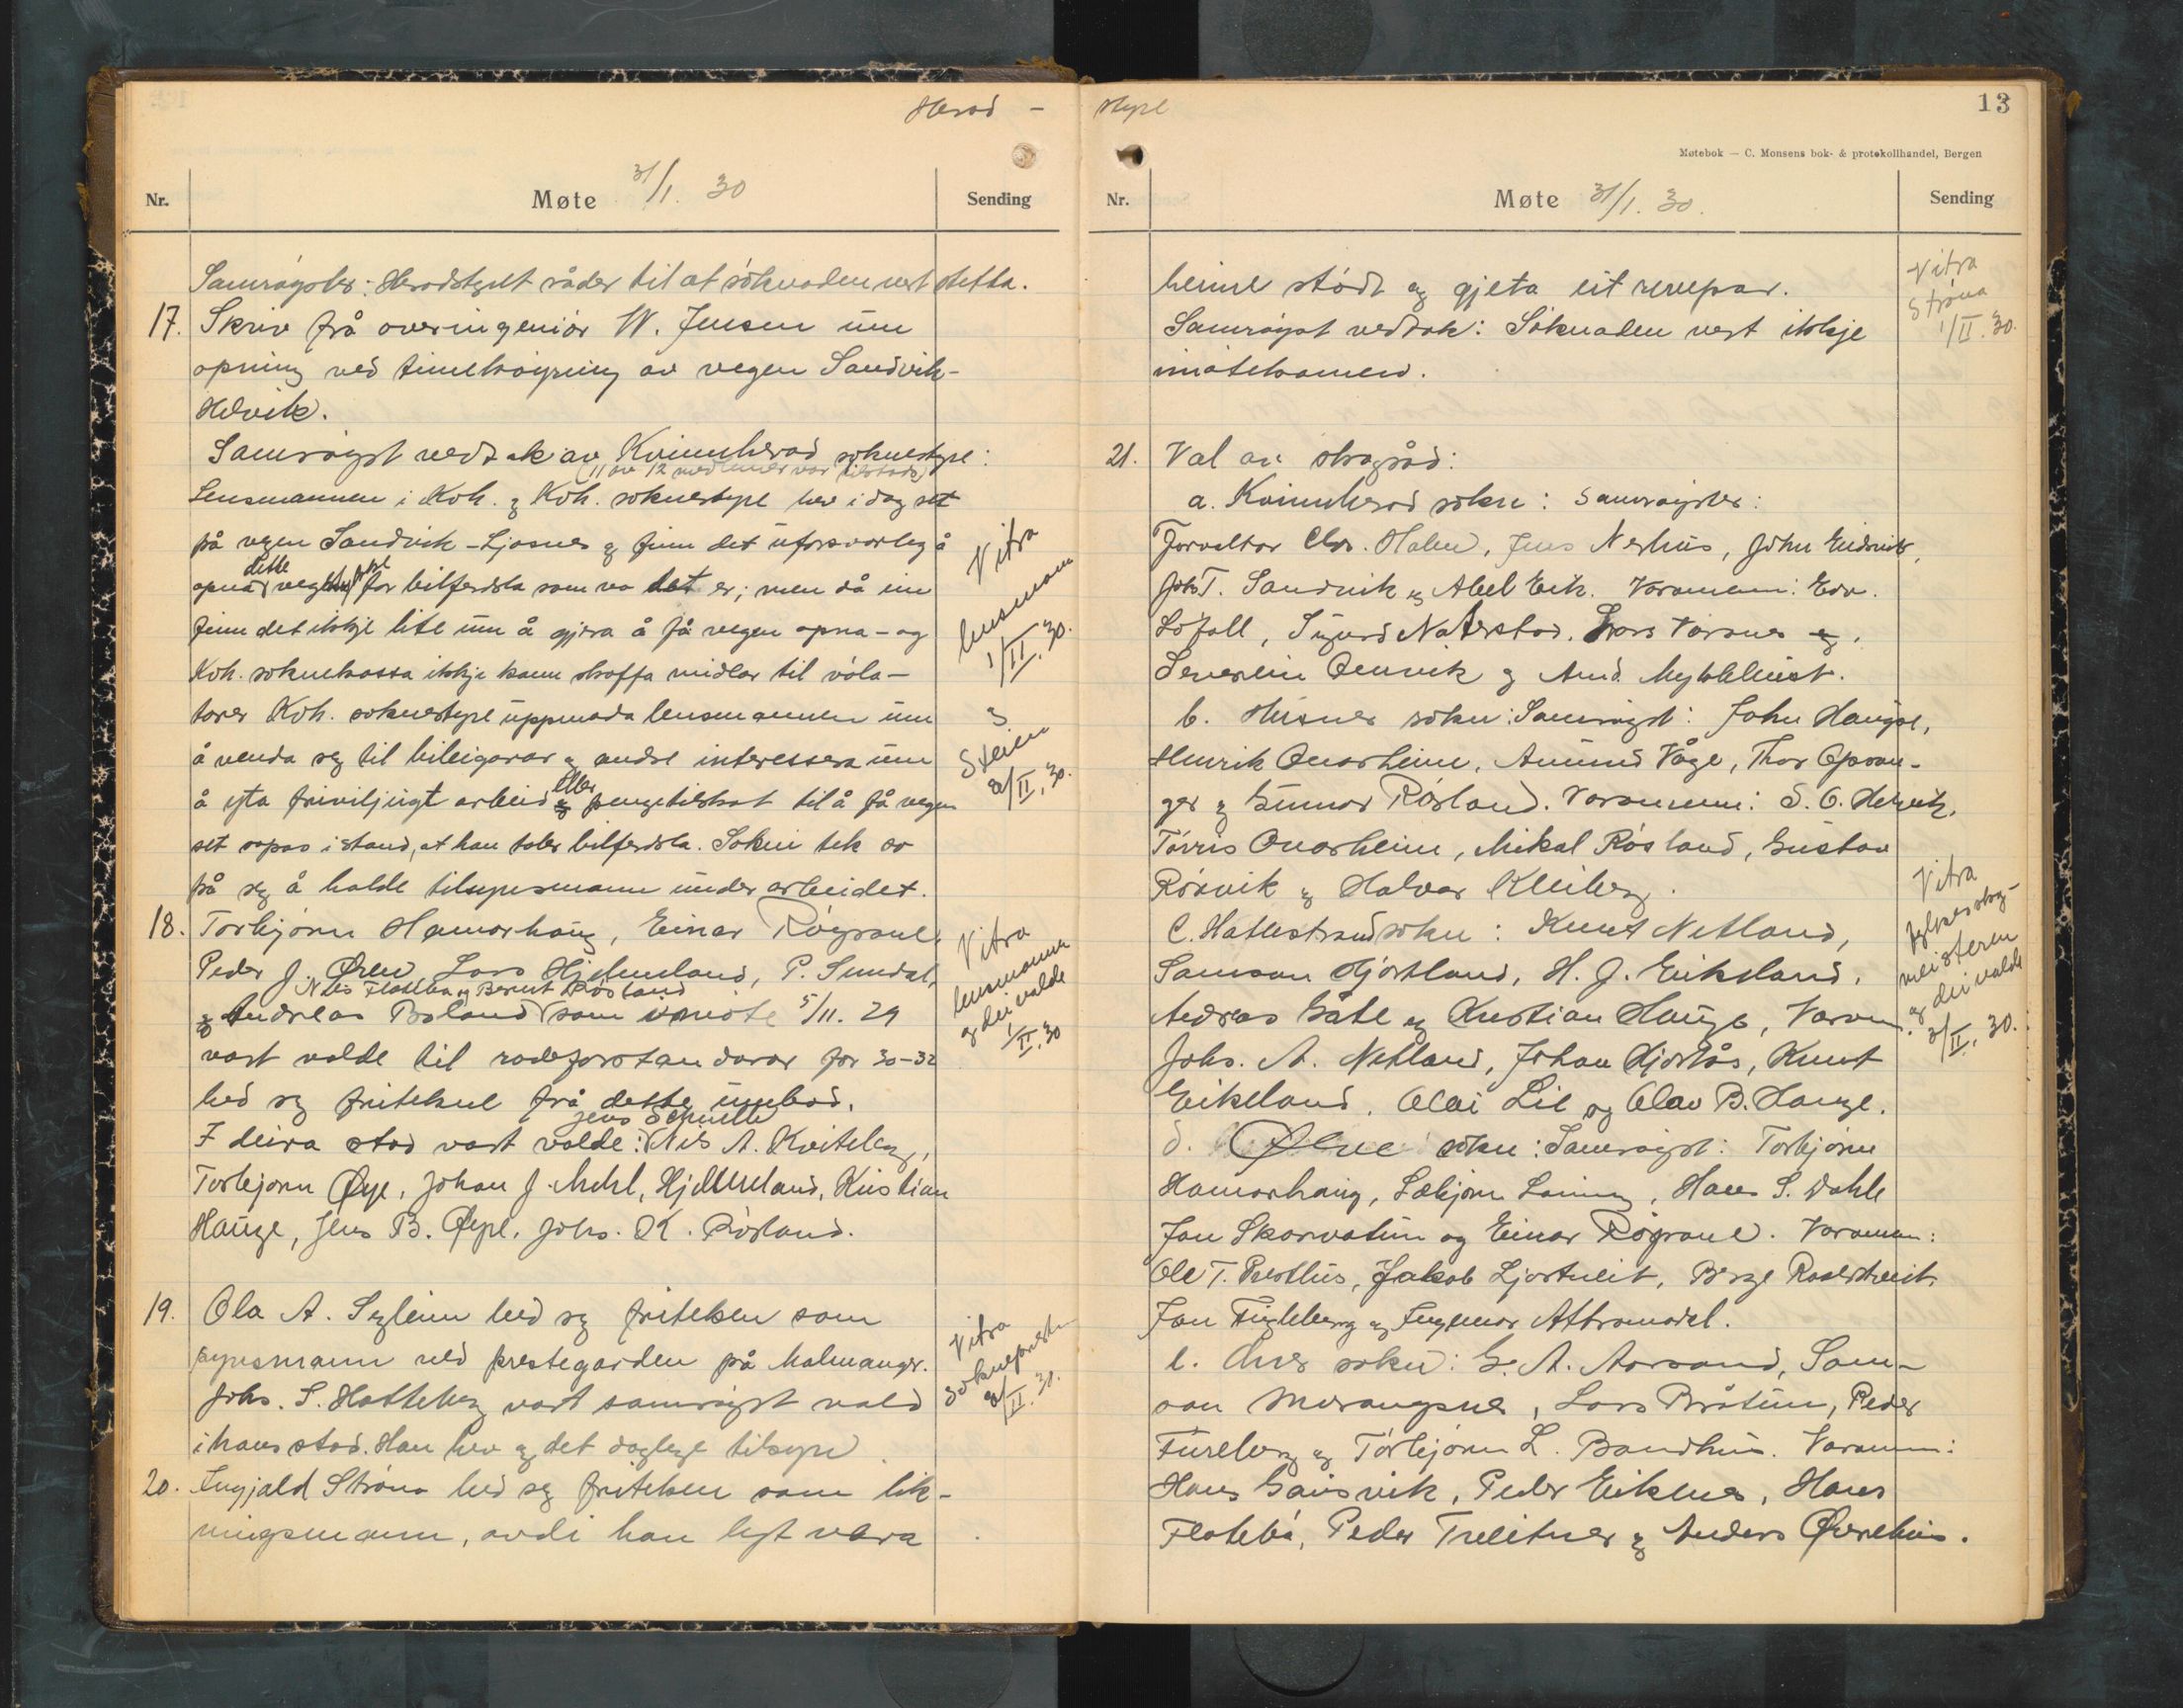 Herad -
Nr.
Møte 31/1. 30
Sending
Samrøystes: Heradstyret råder til at søknaden vert stetta.
17. Skriv frå overingeniør W. Jensen um
opning ved tinelkøyring av vegen Sandvik-
Helvik.
Samrøyst vedtak av Kvinnherad soknestyre:
(11 av 12 medlemer var tilstade)
Lensmannen i Kvh. og Kvh. soknestyre hev i dag set
på vegen Sandvik-Ljosnes og finn det uforsvarleg å
opna dette vegstykke for bilferdsla som no det er; men då ein
finn det ikkje lite um å gjera å få vegen opna - og
Kvh. soknekassa ikkje kann skaffa midlar til vøla-
torer Kvh. soknestyre uppmoda lensmannen um
å venda seg til bileigarar og andre interessera um
å yta friviljugt arbeid eller pengetilskot til å få vegen
set sopas i stand, at han toler bilferdsla. Sokni tek av
på seg å halde tilsynsmann under arbeidet.
Vitra
lensmann
1/II. 30.
og
Steien
8/II. 30.
18. Torbjørn Hamarhaug, Einar Røyrane,
Peder J. Øren, Lars Hjelmeland, P. Sundal,
Nils Flatebø og Bernt Røsland
og Andreas Boland (som i møte 5/11. 29
vart valde til rodeforstandarar for 30-32
bed seg fritekne frå dette umbod.
Jens Schnelle
I deira stad vart valde: Nils A. Kviteberg,
Torbjørn Øye, Johan J. Mehl, Hjelmeland, Kristian
Hauge, Jens B. Øyre, Johs. K. Røsland.
Vitra
lensmann
og dei valde
1/II. 30
19. Ola A. Seglem bed seg friteken som
synsmann ved prestegarden på Malmanger.
Johs. S. Hatteberg vart samrøyst vald
i hans stad. Han hev og det daglege tilsyn.
Vitra
sokneprest
8/II. 30.
20. Ingjald Strøno bed seg friteken som lik-
ningsmann, avdi han lyt vera
styre
13
Møtebok — C. Monsens bok- & protokollhandel, Bergen
Nr.
Møte 31/1. 30.
Sending
heime stødt og gjeta eit revepar.
Samrøyst vedtak: Søknaden vert ikkje
imøtekomen.
Vitra
Strøno
1/II. 30.
21. Val av skogråd:
a. Kvinnherad sokn: Samrøystes:
Forvaltar Chr. Halen, Jens Nerhus, John Eidsvik,
Johs T. Sandvik og Abel Eik. Varamenn: Edv.
Løfall, Sigurd Naterstad, Lars Varanes og,
Severin Omvik og Amd. Myklebust.
b. Husnes sokn: Samrøyst: John Hauge,
Henrik Onarheim, Amund Våge, Thor Opsan-
ger og Gunnar Røsland. Varamenn: S. O. Helvik,
Tørris Onarheim, Mikal Røsland, Gustav
Røsvik og Halvar Kleiberg.
c. Hatlestrand sokn: Knut Netland,
Samson Hjortland, H. J. Eikeland,
Andreas Gåte og Kristian Hauge, Varam.
Johs. A. Netland, Johan Hjortås, Knut
Eikeland, Olai Lie og Olav B. Hauge.
Vitra
fylkesskog-
meisteren
og dei valde
3/II. 30.
d. Ølve sokn: Samrøyst: Torbjørn
Hamarhaug, Sæbjørn Laining, Hans S. Dahle
Jan Skarvatun og Einar Røyrane. Varamenn:
Ole T. Presthus, Jakob Ljostveit, Børge Raastveit,
Jan Fugleberg og Ingemar Attramadal.
e. Ænes sokn: G. A. Aarsand, Sam-
son Murangsnes, Lars Bråtun, Peder
Fureberg og Torbjørn L. Bondhus. Varamenn:
Hans Gausvik, Peder Eiknes, Hans
Flatebø, Peder Treitnes og Anders Øvrehus.